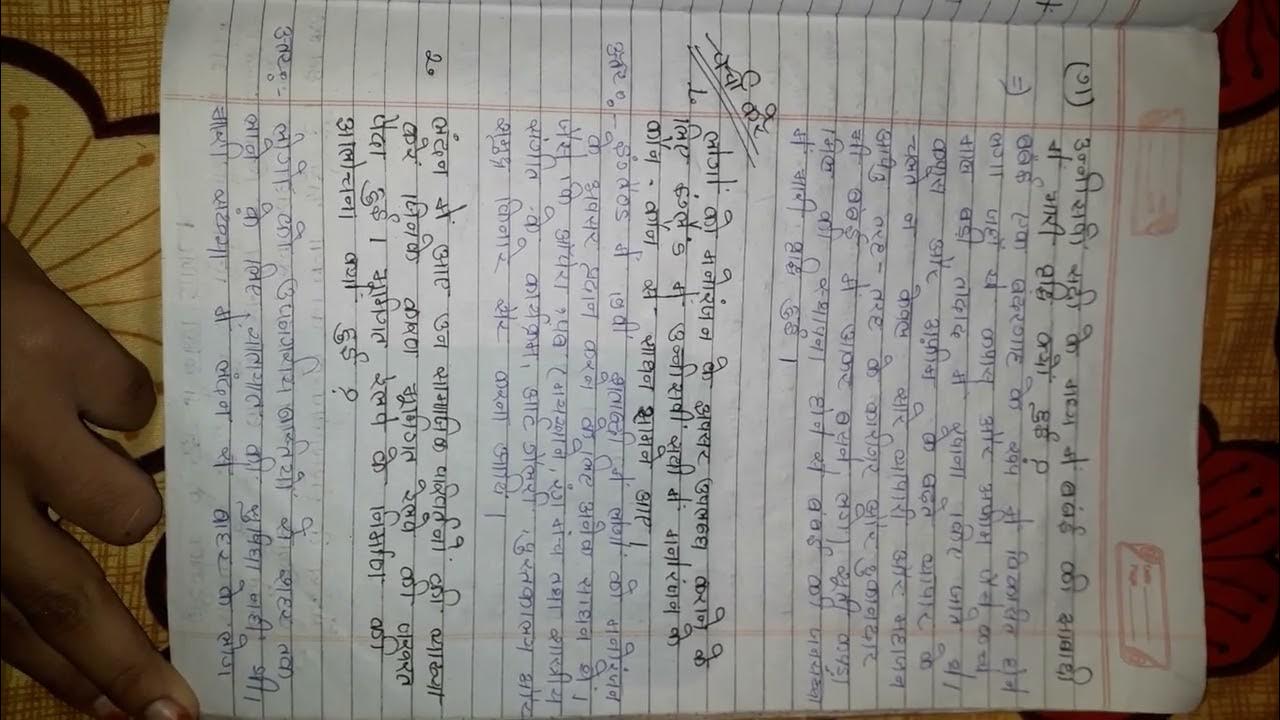 (ग) उन्नीसवीं सदी के मध्य में बंबई की आबादी
में भारी वृद्धि क्यों हुई ?
⇒ बंबई एक बंदरगाह के रूप में विकसित होने
लगा जहाँ से कपास और अफीम जैसे कच्चे
माल बड़ी तादाद में रवाना किए जाते थे।
कपास और अफीम के बढ़ते व्यापार के
चलते न केवल और व्यापारी और महाजन
अपितु तरह-तरह के कारीगर और दुकानदार
भी बंबई में आकर बसने लगे। सूती कपड़ा
मिल की स्थापना होने से बंबई की जनसंख्या
में भारी वृद्धि हुई।
1. लोगों को मनोरंजन के अवसर उपलब्ध कराने के
लिए इंग्लैंड में उन्नीसवीं सदी में मनोरंजन के
कौन-कौन से साधन सामने आए।
उत्तर:- इंग्लैण्ड में उन्नीसवीं शताब्दी में लोगों को मनोरंजन
के अवसर प्रदान करने के लिए अनेक साधन थे।
जैसे कि ऑपेरा, रंगमंच तथा शास्त्रीय
संगीत के कार्यक्रम, पुस्तकालय और
समुद्र किनारे सैर करना आदि।
2. लंदन में आए उन सामाजिक परिवर्तनों की व्याख्या
करें जिनके कारण भूमिगत रेलवे की जरूरत
पैदा हुई। भूमिगत रेलवे के निर्माण की
आलोचना क्यों हुई ?
उत्तर:- लोगों को उपनगरीय बस्तियों से शहर तक
लाने के लिए, यातायात की सुविधा नहीं थी।
भारी संख्या में लंदन से बाहर के लोग